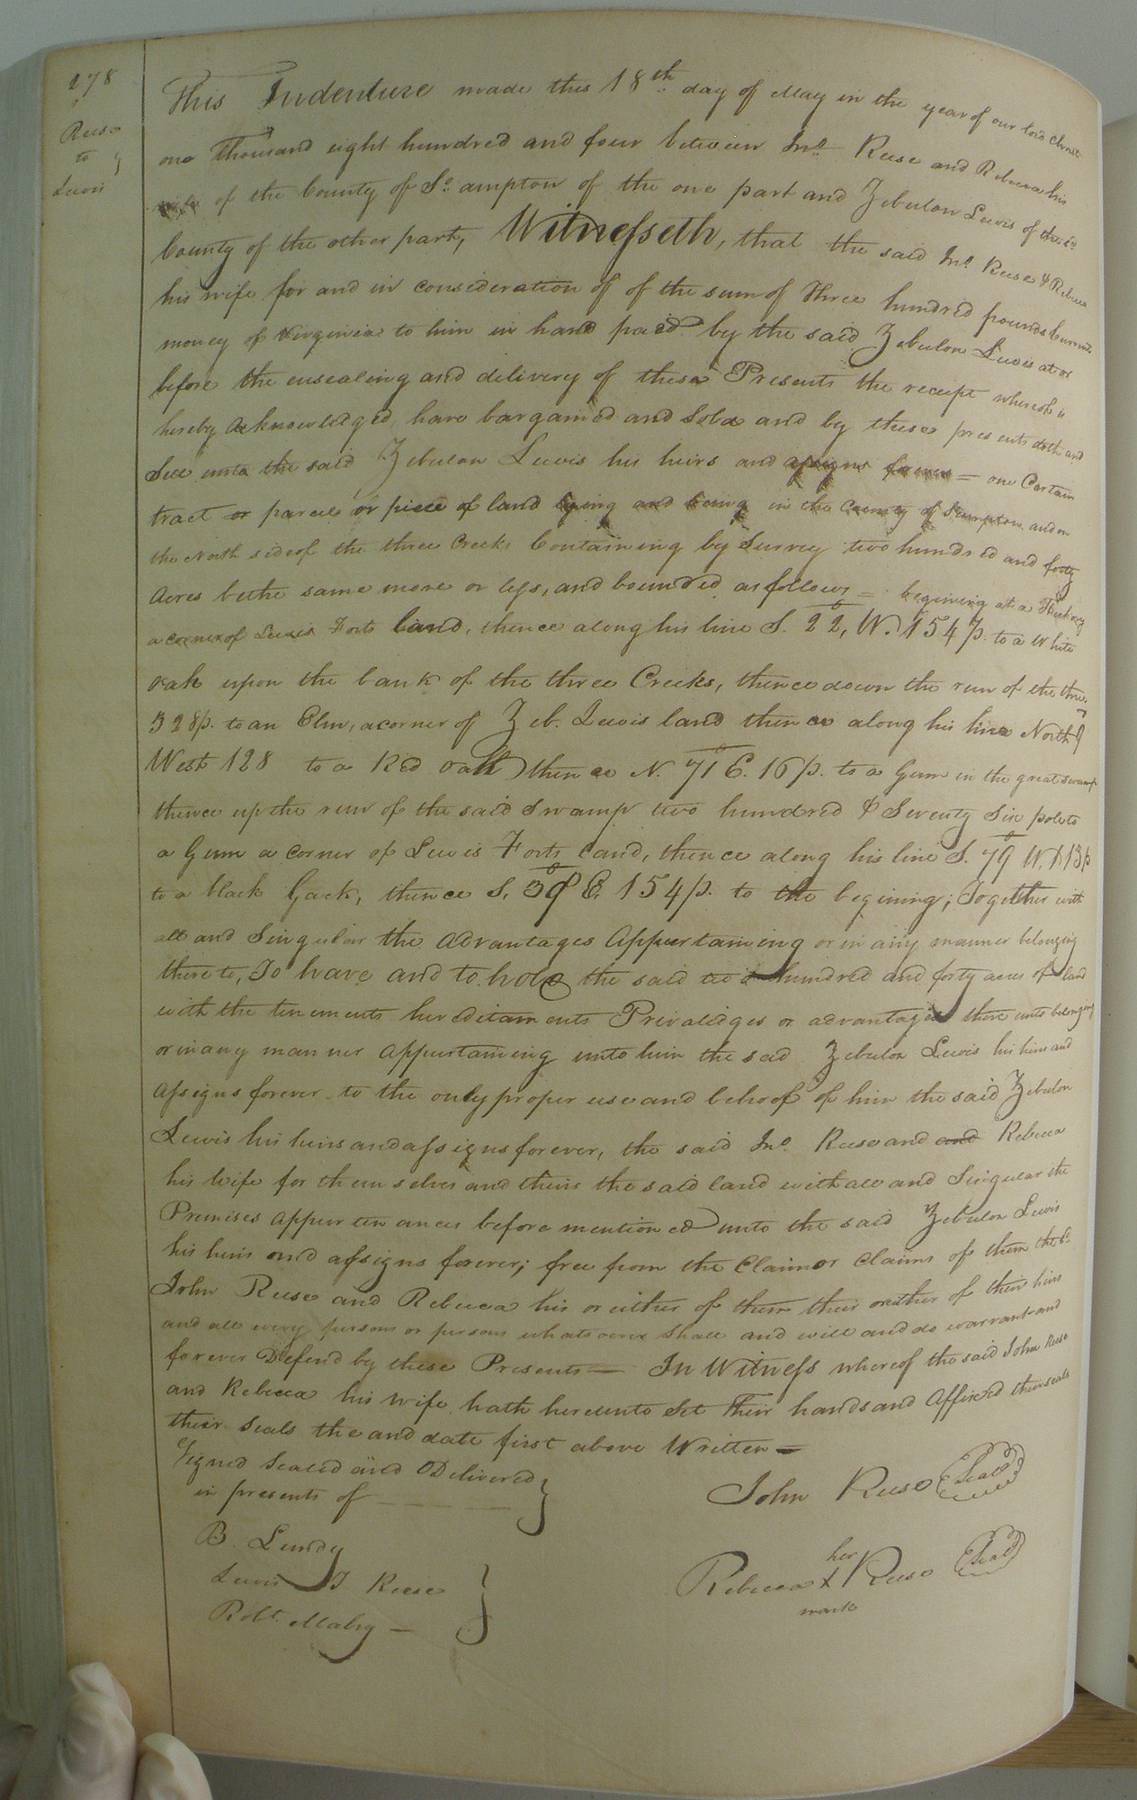 278
Reese
to
Lewis
This Indenture made this 18th day of May in the year of our lord Christ
one Thousand eight hundred and four between Jno. Reese and Rebecca his
wife of the County of So.ampton of the one part and Zebulon Lewis of the sd.
County of the other part, Witnesseth, that the said Jno. Reese & Rebecca
his wife for and in consideration of of the sum of three hundred pounds Current
money of Virginia to him in hand paid by the said Zebulon Lewis at or
before the ensealing and delivery of these Presents the receipt whereof is
hereby acknowledged, have bargained and Sold and by these presents doth and
Sell unto the said Zebulon Lewis his heirs and assigns forever = one Certain
tract or parcel or piece of land lying and being in the County of Sampton and on
the North side of the three Creeks Containing by Survey two hundred and forty
Acres be the same more or less, and bounded as follows = begining at a
a corner of Lewis Forts land, thence along his line S. 22, W. 154 p. to a White
oak upon the bank of the three Creeks, thence down the run of the three
328 p. to an Elm, a corner of Zeb. Lewis land thence along his line North 9
West 128 to a Red oak thence N. 71 E. 16 p. to a Gum in the great swamp
thence up the run of the said Swamp two hundred & Seventy Six pole to
a Gum a corner of Lewis Forts land, thence along his line S. 79 W. 113 p
to a black Jack, thence S. 39 E. 154 p. to the begining; Together with
all and Singular the advantages Appurtaining or in any manner belonging
thereto, To have and to hold the said two hundred and forty acres of land
with the tenements hereditaments Privaledges or advantages there unto belonging
or in any manner appurtaining unto him the said Zebulon Lewis his heirs and
Assigns forever to the only proper use and behoof of him the said Zebulon
Lewis his heirs and assigns forever, the said Jno. Reese and and Rebecca
his Wife for themselves and theirs the said land with all and Singular the
Premises appurtenances before mentioned unto the said Zebulon Lewis
his heirs and assigns forever; free from the Claim or Claims of them the sd.
John Reese and Rebecca his or either of them their or either of their heirs
and all every persons or persons whatsoever Shall and will and do warrant and
forever Defend by these Presents — In Witness whereof the said John Reese
and Rebecca his wife hath hereunto Set Their hands and Affixed their seals
their Seals the and date first above Written —
Signed Sealed and Delivered
in presents of
John Reese Seal
B. Lundy
her
Rebecca X Reese Seal
mark
Lewis J Reese
Robt. Mabry —